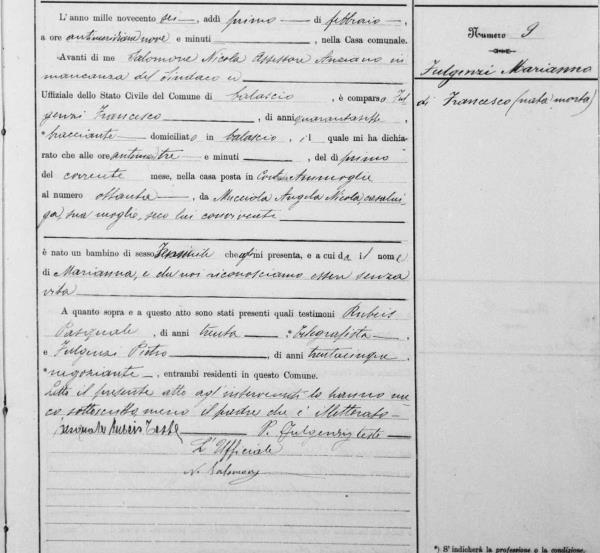 L'anno mille novecento sei, addì primo di febbraio,
a ore antimeridiane nove e minuti, nella Casa comunale.
Avanti di me Salomone Nicola Assessore Anziano in
mancanza del Sindaco
Uffiziale dello Stato Civile del Comune di Calascio, è comparso Ful-
genzi Francesco, di anni quarantasette
*bracciante domiciliato in Calascio, il quale mi ha dichia-
rato che alle ore antim. tre e minuti, del dì primo
del corrente mese, nella casa posta in
al numero ottanta, da Mucciola Angela Nicola, casalin-
ga, sua moglie, seco lui convivente
è nato un bambino di sesso femminile che egli mi presenta, e a cui dà il nome
di Marianna, e che noi riconosciamo esser senza
vita
A quanto sopra e a questo atto sono stati presenti quali testimoni Rubeis
Pasquale, di anni trenta, *telegrafista
e Fulgenzi Pietro, di anni trentacinque,
*negoziante, entrambi residenti in questo Comune.
Letto il presente atto agl'intervenuti lo hanno me
co sottoscritto meno il padre che è illetterato
Pasquale Rubeis Teste P. Fulgenzi teste
L'Ufficiale
N. Salomone
Numero 9
Fulgenzi Marianna
di Francesco (nata morta)
*) S'indicherà la professione o la condizione.